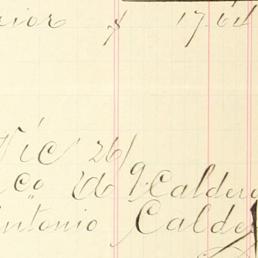 rior y 17 64
Dic 26/
Co. de G. Caldero
Antonio Calde